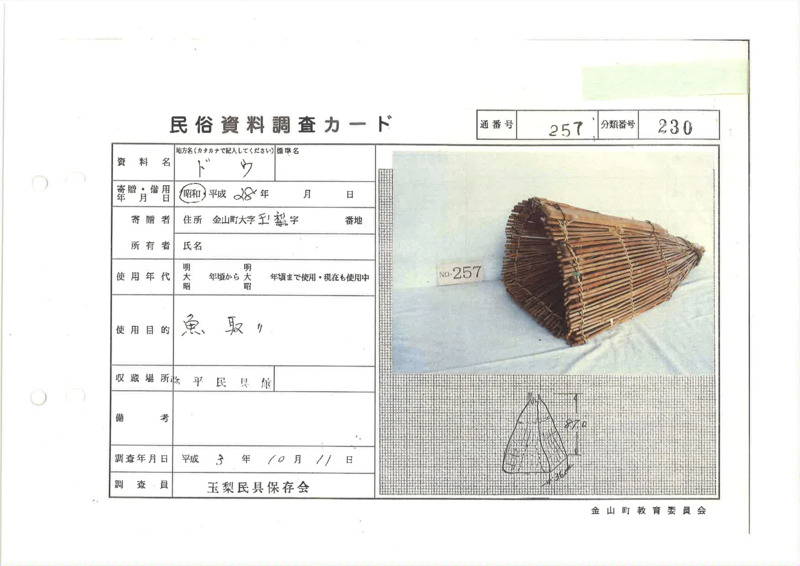 民俗資料調査カード
通番号 257 分類番号 230
資料名 地方名(カタカナで記入してください) 標準名
ドウ
寄贈・借用年月日 昭和・平成 28年 月 日
寄贈者 住所 金山町大字玉梨字 番地
所有者 氏名
使用年代 明大昭 年頃から 明大昭 年頃まで使用・現在も使用中
使用目的 魚取り
収蔵場所 平民具館
備考
調査年月日 平成 3年 10月 11日
調査員 玉梨民具保存会
NO. 257
87.0
36
金山町教育委員会